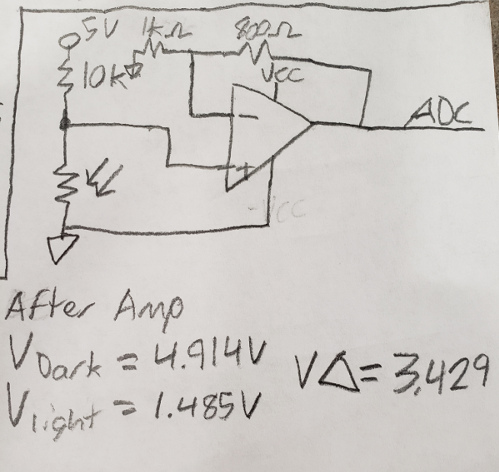 5V 1kΩ 800Ω
10k
VCC
ADC
-
+
-VCC
After Amp
VDark = 4.914V
VΔ= 3.429
Vlight = 1.485V